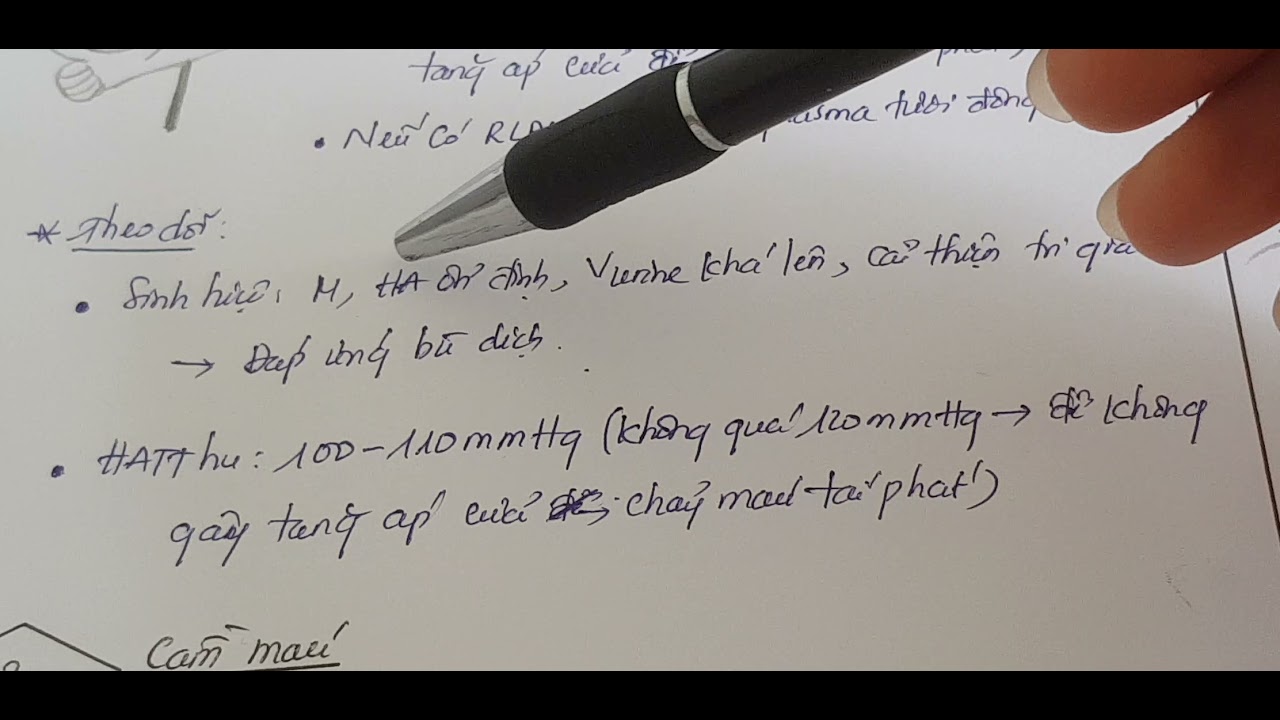 tăng áp cửa để
• Nếu có RLĐM plasma tươi đông
* Theo dõi:
• Sinh hiệu: M, HA ổn định, Vurine khá lên, cải thiện tri giác
→ Đáp ứng bù dịch.
• HATThu: 100-110mmHg (không quá 120mmHg → để không
gây tăng áp cửa → chảy máu tái phát)
Cầm máu